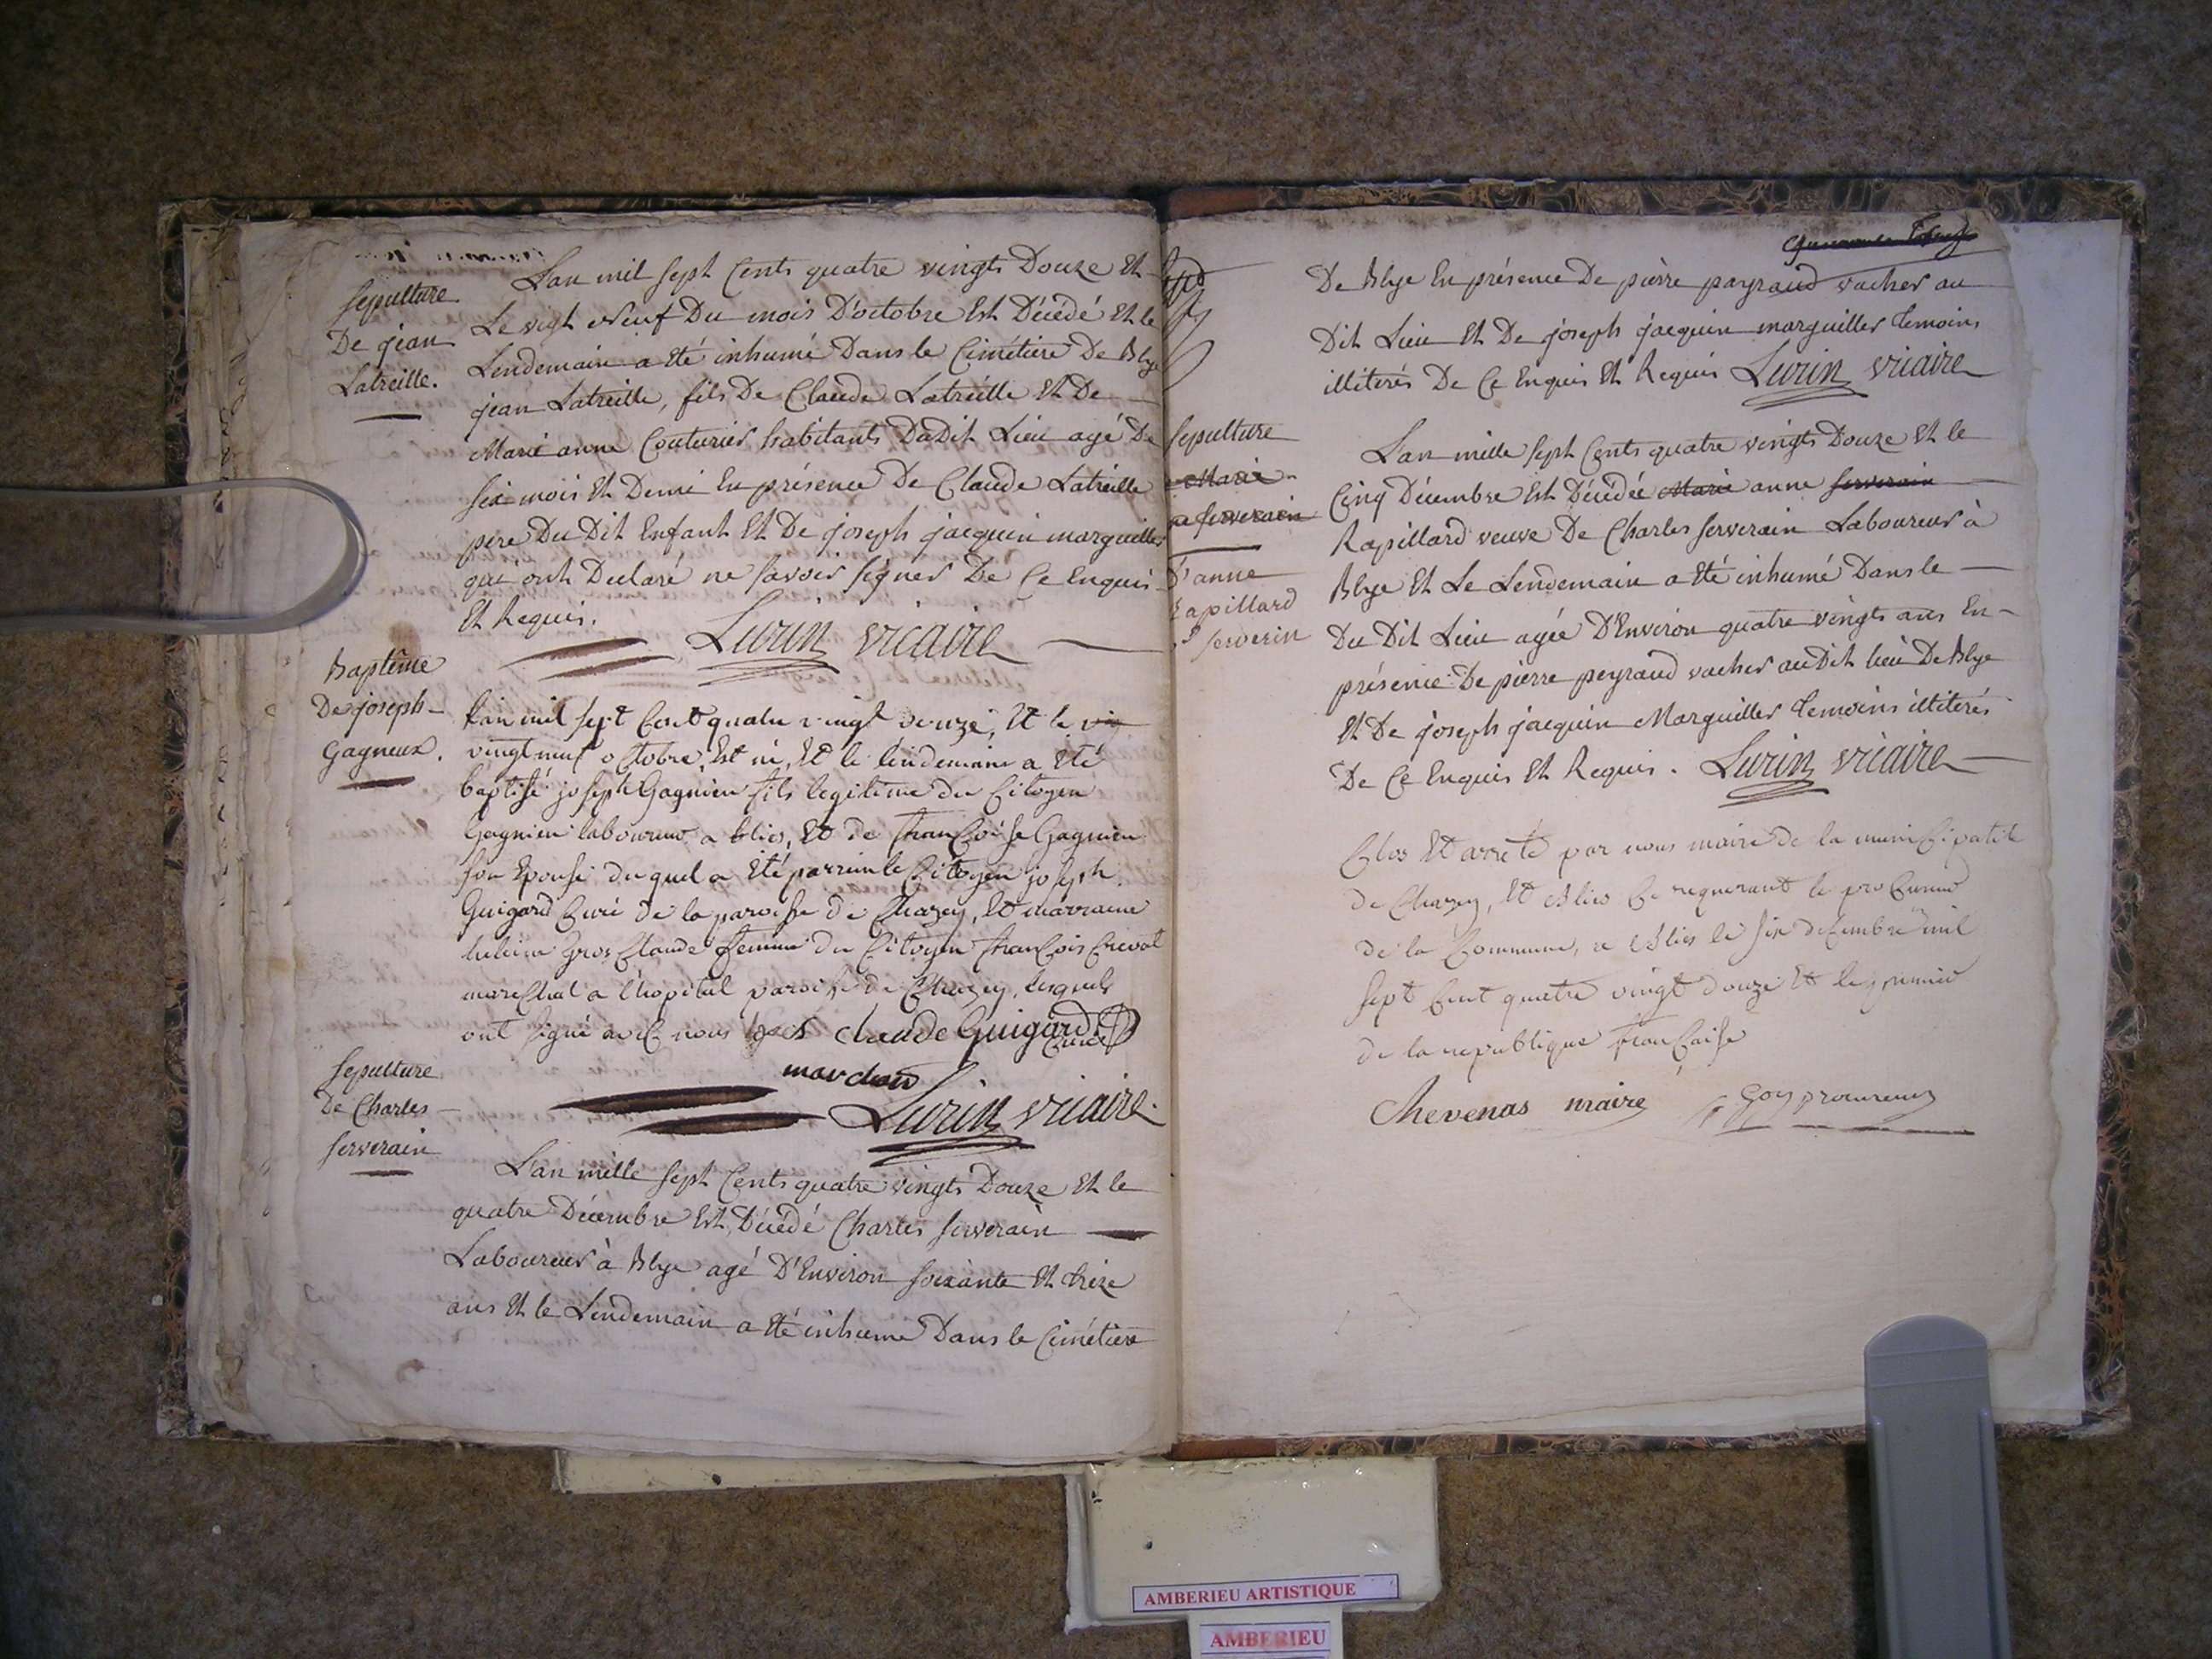 Sepulture
De jean
Latreille.
L'an mil sept Cents quatre vingts Douze Et
Le vigt neuf Du mois D'octobre Est Décedé Et le
Lendemain a Eté inhumé Dans le Cimétiere De Blye
jean Latreille, fils De Claude Latreille Et De
Marie anne Couturier habitants DuDit Lieu agé De
six mois Et Demi En présence De Claude Latreille
pere Du Dit Enfant Et De joseph jacquin marguiller
qui ont Declaré ne savoir signer De Ce Enquis
Et Requis.
Lurin vicaire
Baptême
De joseph
Gagneux.
L'an mil sept Cent quatre vingt douze, Et le
vingt neuf octobre, Est né, Et le lendemain a Eté
baptisé joseph Gagnieu fils legitime du Citoyen
Gagnieu laboureur a blies, Et de françoise Gagnieu
son Epouse duquel a Eté parrain le Citoyen joseph
Guigard Curé de la paroisse de Chazey, Et marraine
Gros Claude femme du Citoyen françois
marechal a l'hopital paroisse de Chazey, lesquels
ont signé avec nous claude Guigard
Curé
Lurin vicaire
Sepulture
De Charles
Serverain
L'an mille sept Cents quatre vingts Douze Et le
quatre Décembre Est Décédé Charles Serverain
Laboureur à Blye agé D'Environ soixante Et treize
ans Et le Lendemain a Eté inhumé Dans le Cimétiere
De Blye En présence De pierre payraud vacher au
Dit Lieu Et De joseph jacquin marguiller temoins
illiterés De Ce Enquis Et Requis Lurin vicaire
Sepulture
Marie
Serverain
D'anne
Rapillard
Serverin
L'an mille sept Cents quatre vingts Douze Et le
Cinq Décembre Est Décédée Marie anne Serverain
Rapillard veuve De Charles Serverain Laboureur à
Blye Et Le Lendemain a Eté inhumé Dans le
Du Dit Lieu agée D'Environ quatre vingts ans En
présence De pierre peyraud vacher au Dit lieu De Blye
Et De joseph jacquin Marguiller temoins illiterés
De Ce Enquis Et Requis. Lurin vicaire
Clos Et arreté par nous maire de la municipalité
de Chazey, Et Blies Ce requerant le procureur
de la Commune, a Blies le six decembre mil
sept Cent quatre vingt douze Et le premier
de la republique française
Chevenas maire Goy procureur
AMBERIEU ARTISTIQUE
AMBERIEU